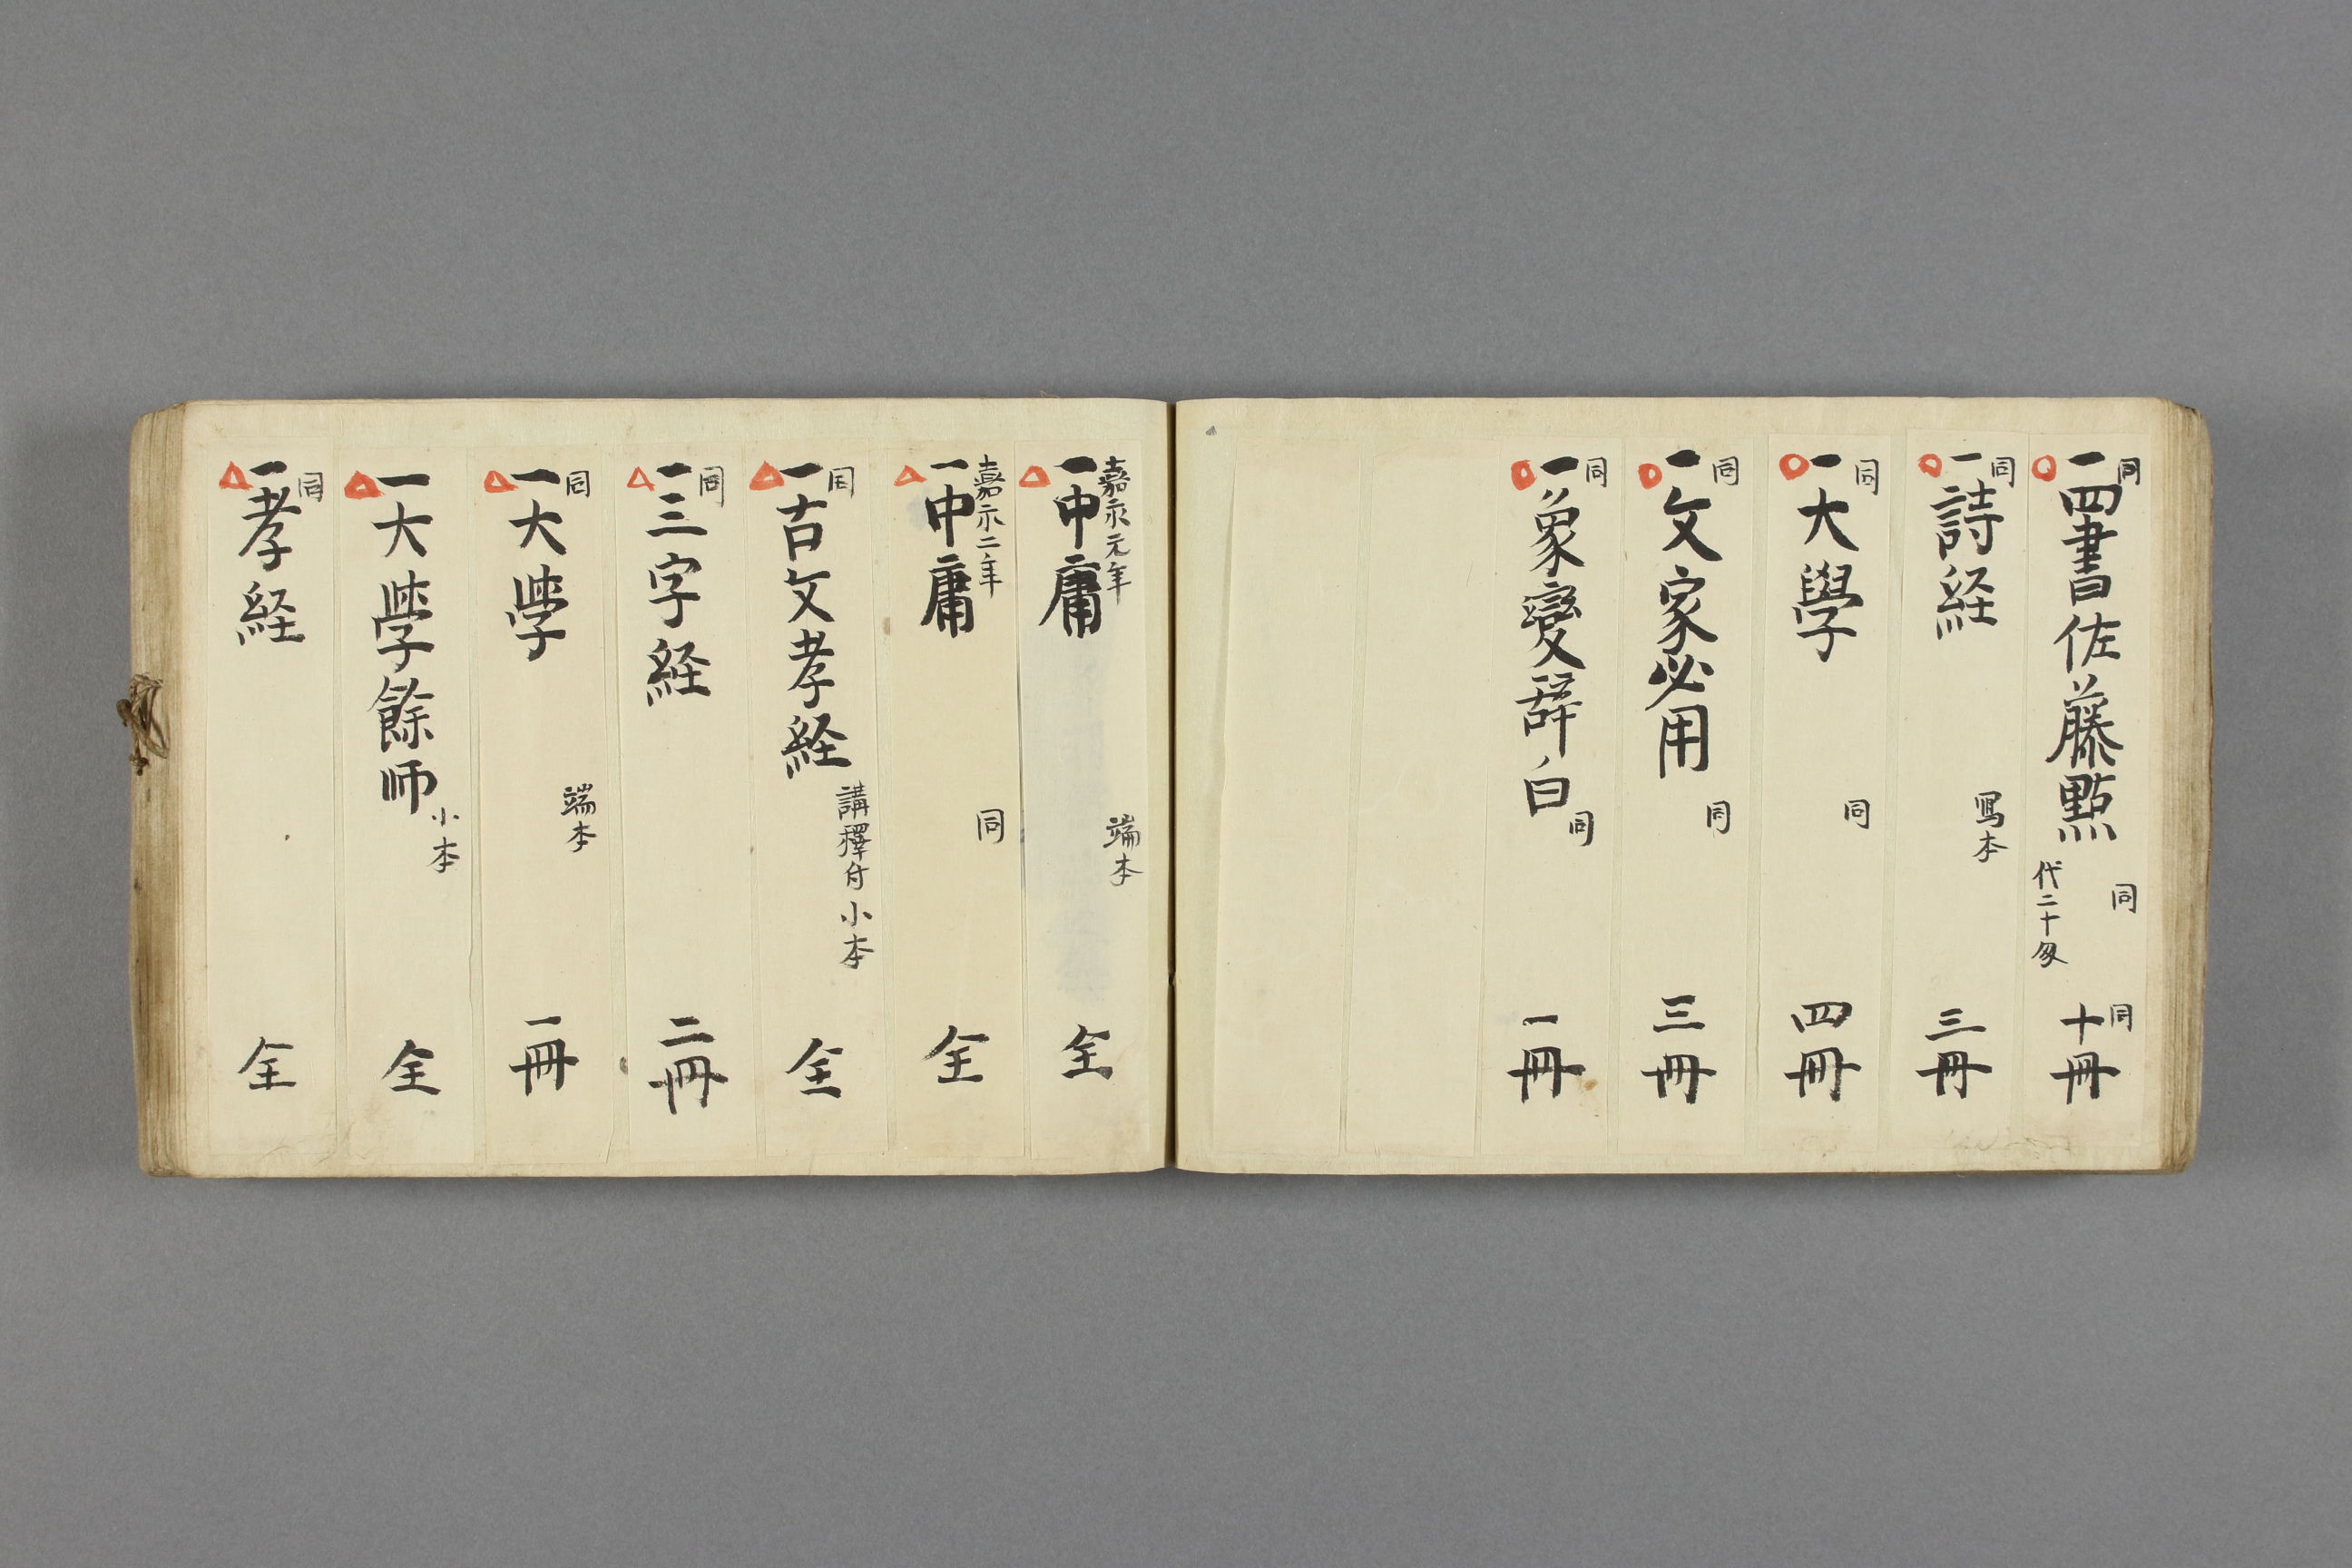 同 一四書佐藤點 同 代二十匁 同 十冊
同 一詩経 写本 三冊
同 一大學 同 四冊
同 一文家必用 同 三冊
同 一象變辞 白 同 一冊
嘉永元年 一中庸 端本 全
嘉永二年 一中庸 同 全
同 一古文孝経 講釋付 小本 全
同 一三字経 二冊
同 一大學 端本 一冊
一大學餘師 小本 全
同 一孝経 全